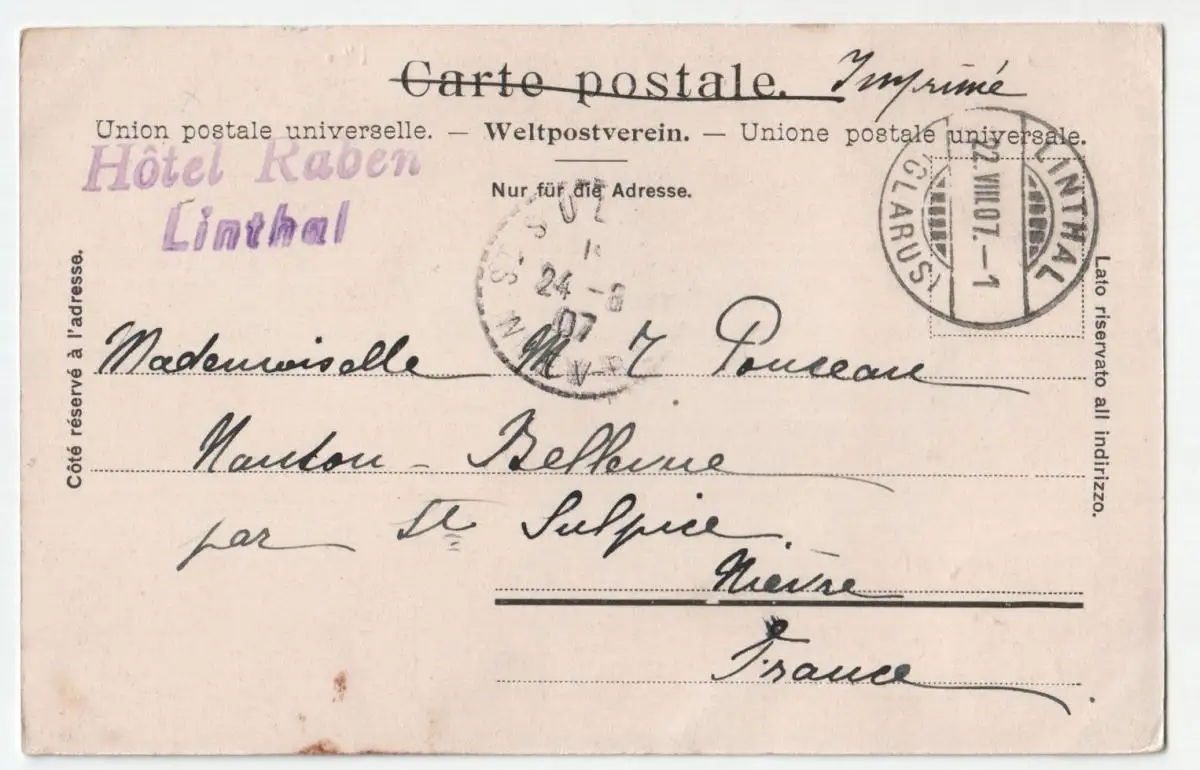 Carte postale. Imprimé
Union postale universelle. — Weltpostverein. — Unione postale universale.
Nur für die Adresse.
Hôtel Raben
Linthal
LINTHAL
22.VIII.07.–1
(GLARUS)
24 - 8
07
Côté réservé à l'adresse.
Lato riservato all indirizzo.
Mademoiselle M
Bellevue
par St Sulpice
Nièvre
France